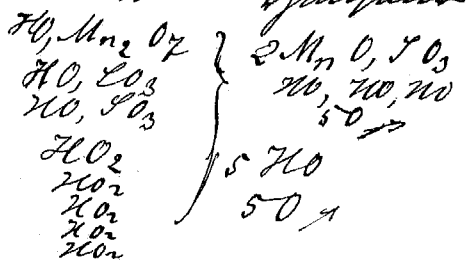 HO, Mn₂ O₇
HO, SO₃
HO, SO₃
HO₂
HO₂
HO₂
HO₂
HO₂
2 Mn O, SO₃
HO, HO, HO
5O
5 HO
5O